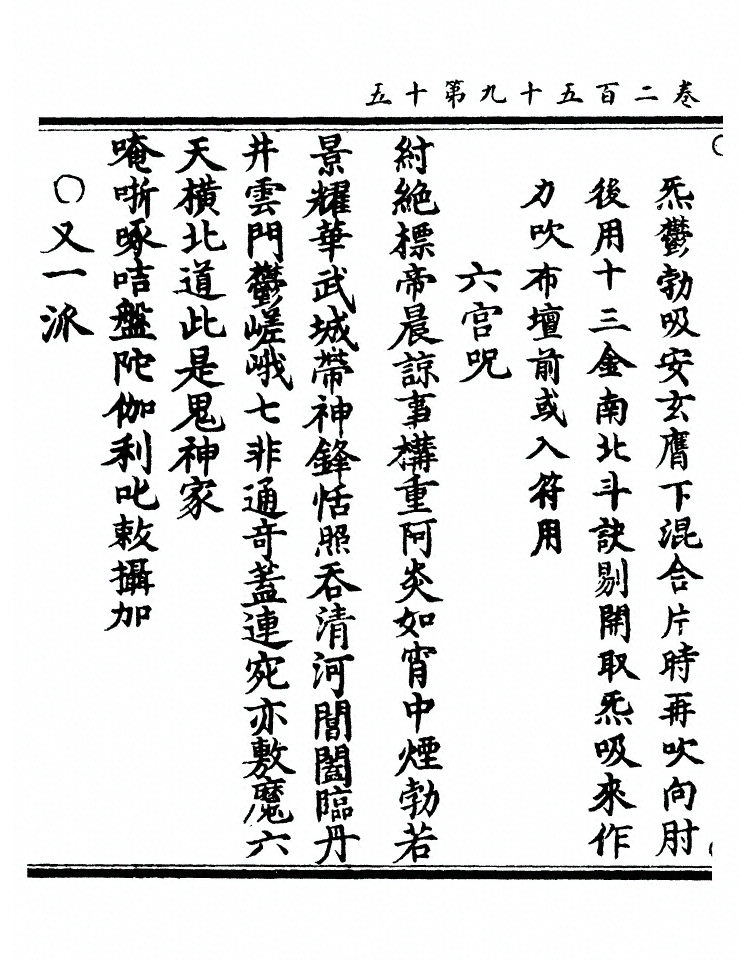 卷二百五十九第十五
炁鬱勃吸安玄膺下混合片時再吹向肘
後用十三金南北斗訣剔開取炁吸來作
力吹布壇前或入符用
六宮呪
紂絕標帝晨諒事構重阿炎如宵中煙勃若
景耀華武城帶神鋒恬照吞清河閶闔臨丹
井雲門鬱嵯峨七非通奇蓋連宛亦敷魔六
天橫北道此是鬼神家
唵哳啄咭盤陀伽利叱敕攝加
○又一派